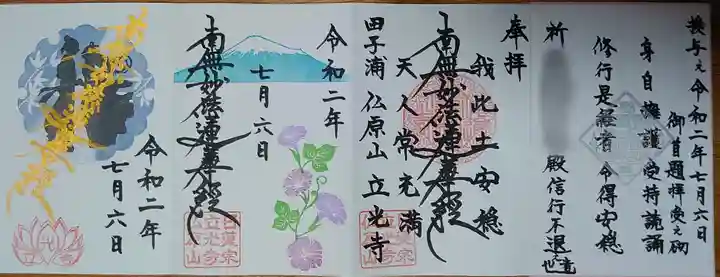 授与之令和二年七月六日
御首題拝受之砌
身自擁護受持読誦
修行是経者令得安穏
祈
殿信行不退
奉拝
我此土安穏
南無妙法蓮華経
天人常充満
田子浦仏原山立光寺
令和二年
七月六日
南無妙法蓮華経
日蓮宗
立光寺
仏原山
令和二年
七月六日